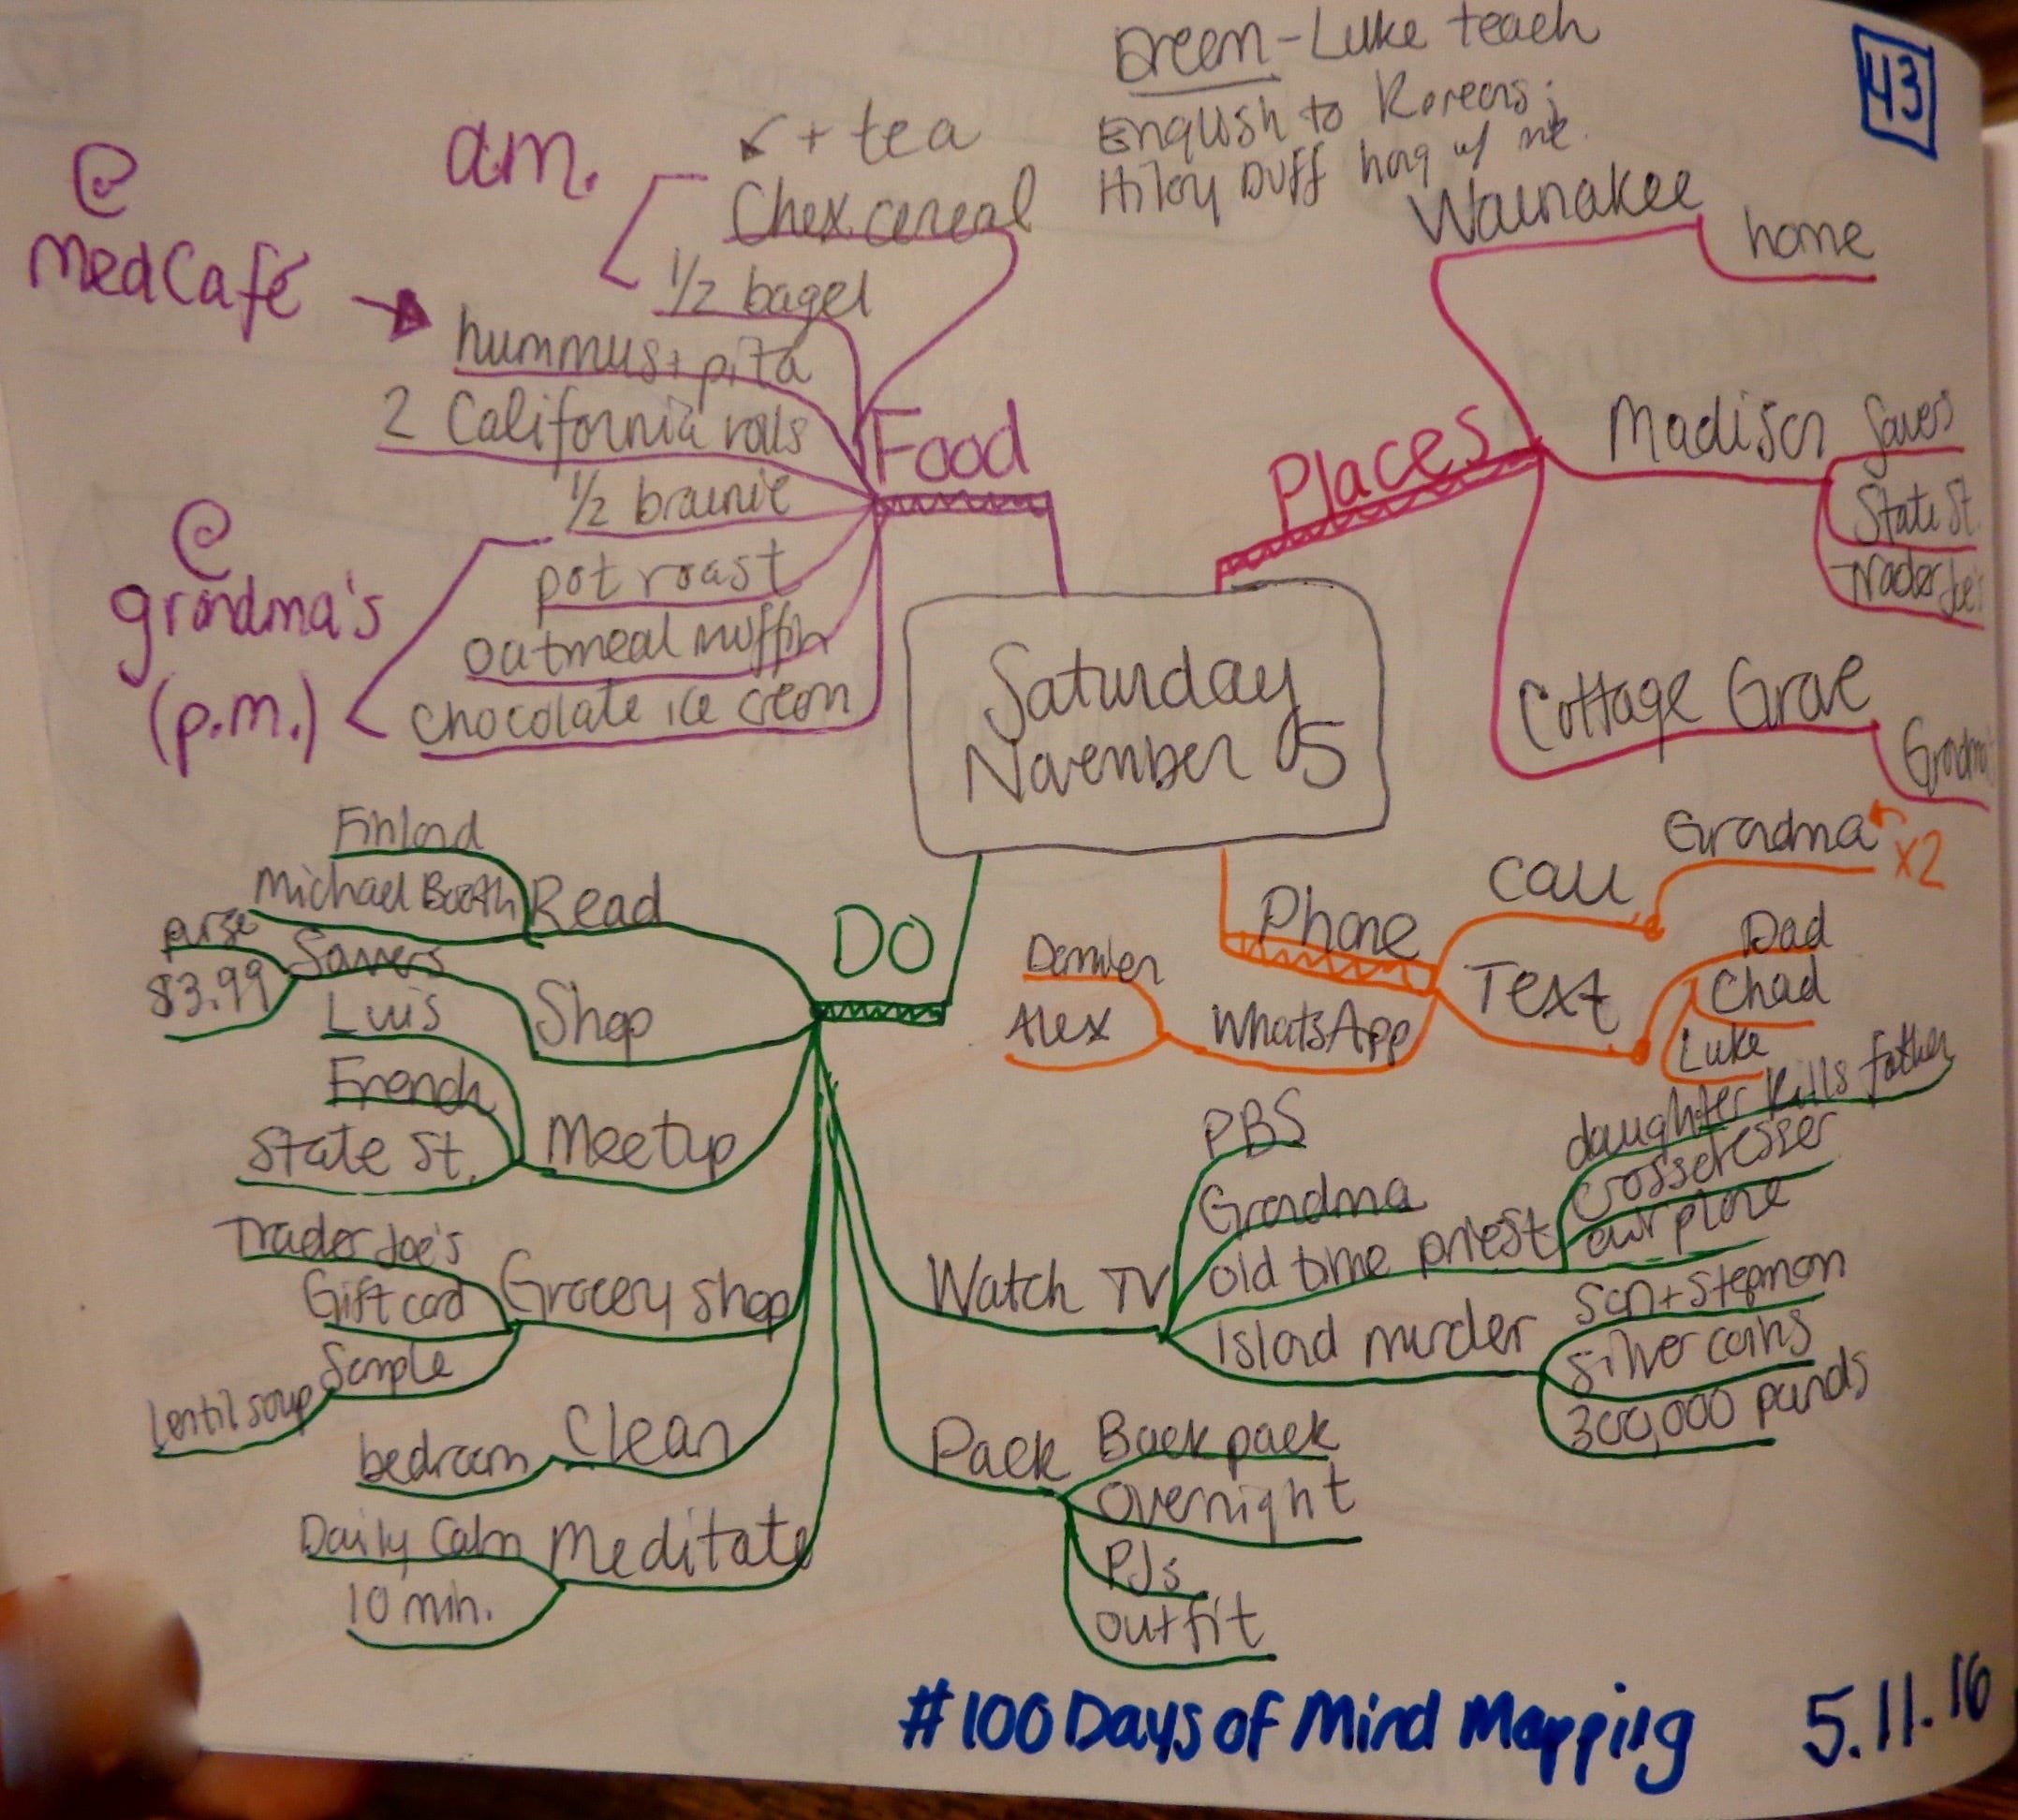 43
Dream - Luke teach
English to Koreans;
Hilary Duff hang w/ me.
a.m.
+ tea
Chex cereal
1/2 bagel
@
MedCafé
hummus + pita
2 California rolls
1/2 brownie
@
grandma's
(p.m.)
pot roast
oatmeal muffin
chocolate ice cream
Food
Places
Waunakee
home
Madison
Savers
State St.
Trader Joe's
Cottage Grove
Grandma's
Saturday
November 05
DO
Read
Finland
Michael Booth
Shop
Savers
purse
$3.99
Meetup
Luis
French
State St.
Grocery shop
Trader Joe's
Gift card
Sample
lentil soup
Clean
bedroom
Meditate
Daily Calm
10 min.
Phone
Call
Grandma
x2
Text
Dad
Chad
Luke
WhatsApp
Damien
Alex
Watch TV
PBS
Grandma
old time priest
daughter kills father
crossdresser
airplane
Island murder
son + stepmom
silver coins
300,000 pounds
Pack
Backpack
overnight
PJs
outfit
#100DaysofMindMapping
5.11.16